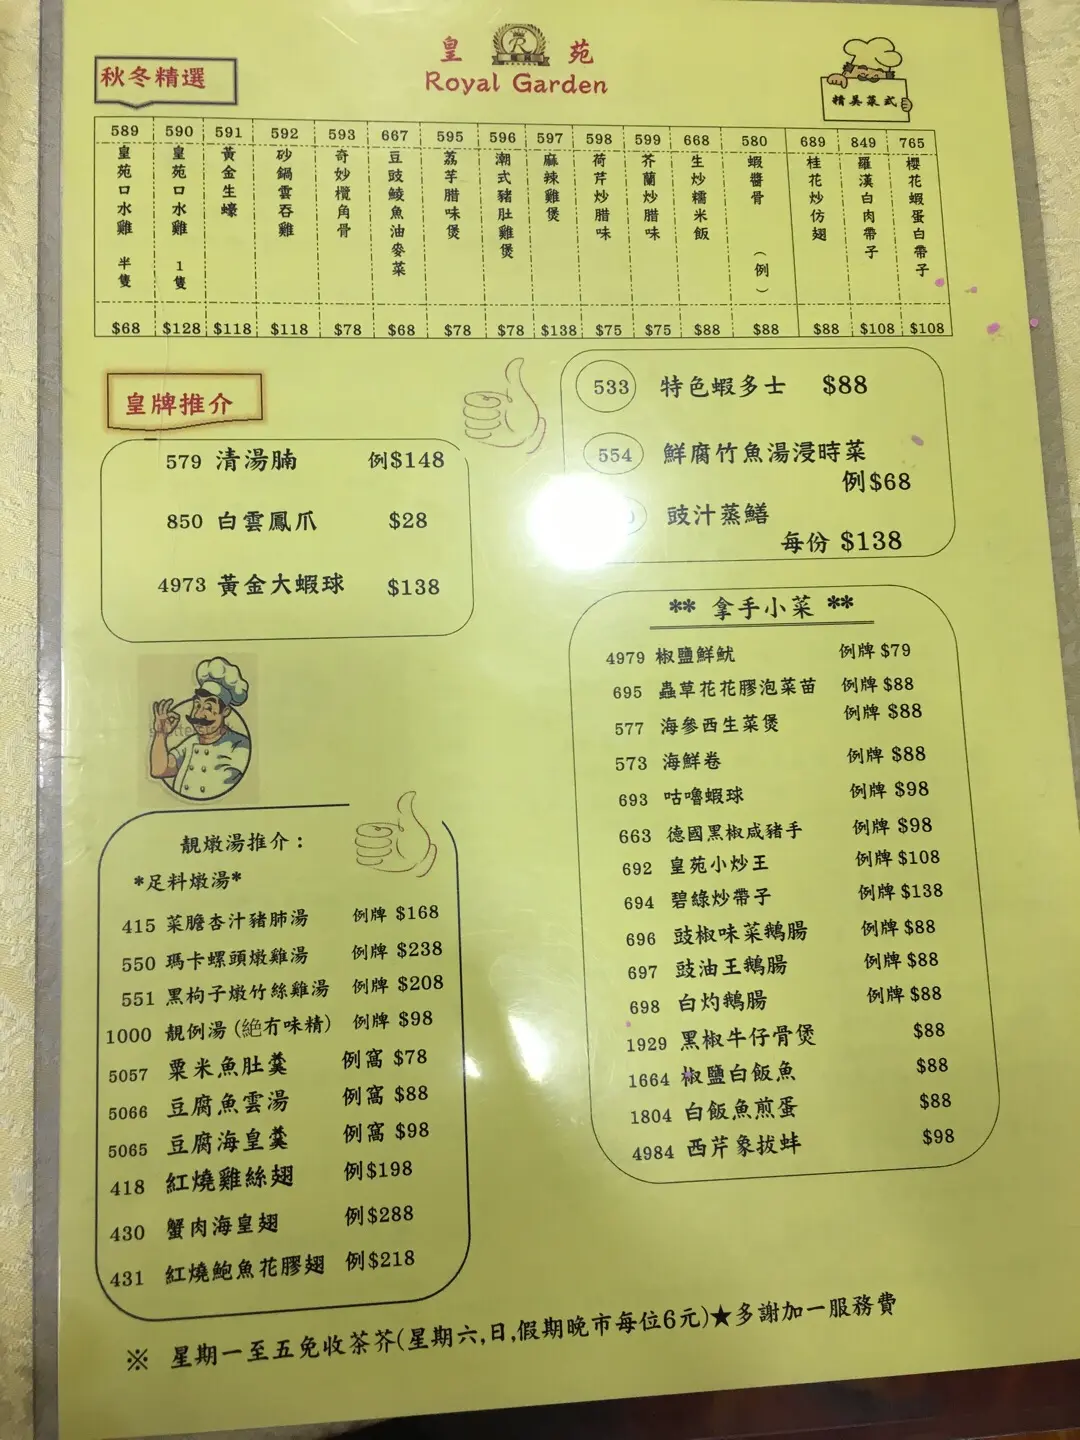 皇 苑
Royal Garden
秋冬精選
精美菜式
589 590 591 592 593 667 595 596 597 598 599 668 580 689 849 765
皇苑口水雞 半隻
皇苑口水雞 1隻
黃金生蠔
砂鍋雲吞雞
奇妙欖角骨
豆豉鯪魚油麥菜
荔芋腊味煲
潮式豬肚雞煲
麻辣雞煲
荷芹炒腊味
芥蘭炒腊味
生炒糯米飯
蝦醬骨 (例)
桂花炒仿翅
羅漢白肉帶子
櫻花蝦蛋白帶子
$68 $128 $118 $118 $78 $68 $78 $78 $138 $75 $75 $88 $88 $88 $108 $108
皇牌推介
579 清湯腩 例$148
850 白雲鳳爪 $28
4973 黃金大蝦球 $138
533 特色蝦多士 $88
554 鮮腐竹魚湯浸時菜
例$68
豉汁蒸鱔
每份 $138
** 拿手小菜 **
4979 椒鹽鮮魷 例牌 $79
695 蟲草花花膠泡菜苗 例牌 $88
577 海參西生菜煲 例牌 $88
573 海鮮卷 例牌 $88
693 咕嚕蝦球 例牌 $98
663 德國黑椒咸豬手 例牌 $98
692 皇苑小炒王 例牌 $108
694 碧綠炒帶子 例牌 $138
696 豉椒味菜鵝腸 例牌 $88
697 豉油王鵝腸 例牌 $88
698 白灼鵝腸 例牌 $88
1929 黑椒牛仔骨煲 $88
1664 椒鹽白飯魚 $88
1804 白飯魚煎蛋 $88
4984 西芹象拔蚌 $98
靚燉湯推介：
*足料燉湯*
415 菜膽杏汁豬肺湯 例牌 $168
550 瑪卡螺頭燉雞湯 例牌 $238
551 黑枸子燉竹絲雞湯 例牌 $208
1000 靚例湯 (絕冇味精) 例牌 $98
5057 粟米魚肚羹 例窩 $78
5066 豆腐魚雲湯 例窩 $88
5065 豆腐海皇羹 例窩 $98
418 紅燒雞絲翅 例$198
430 蟹肉海皇翅 例$288
431 紅燒鮑魚花膠翅 例$218
※ 星期一至五免收茶芥(星期六,日,假期晚市每位6元)★多謝加一服務費